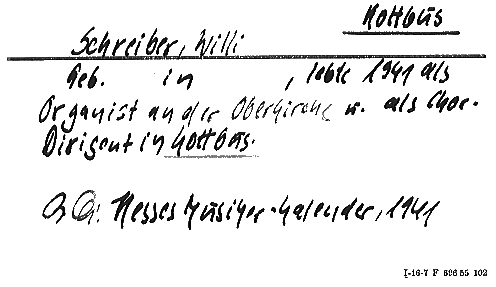 Kottbus
Schreiber, Willi
Geb. in , lebte 1941 als
Organist an der Oberkirche u. als Chor-
Dirigent in Kottbus.
Hesses Musiker-Kalender, 1941
I-16-7 F 696 55 102